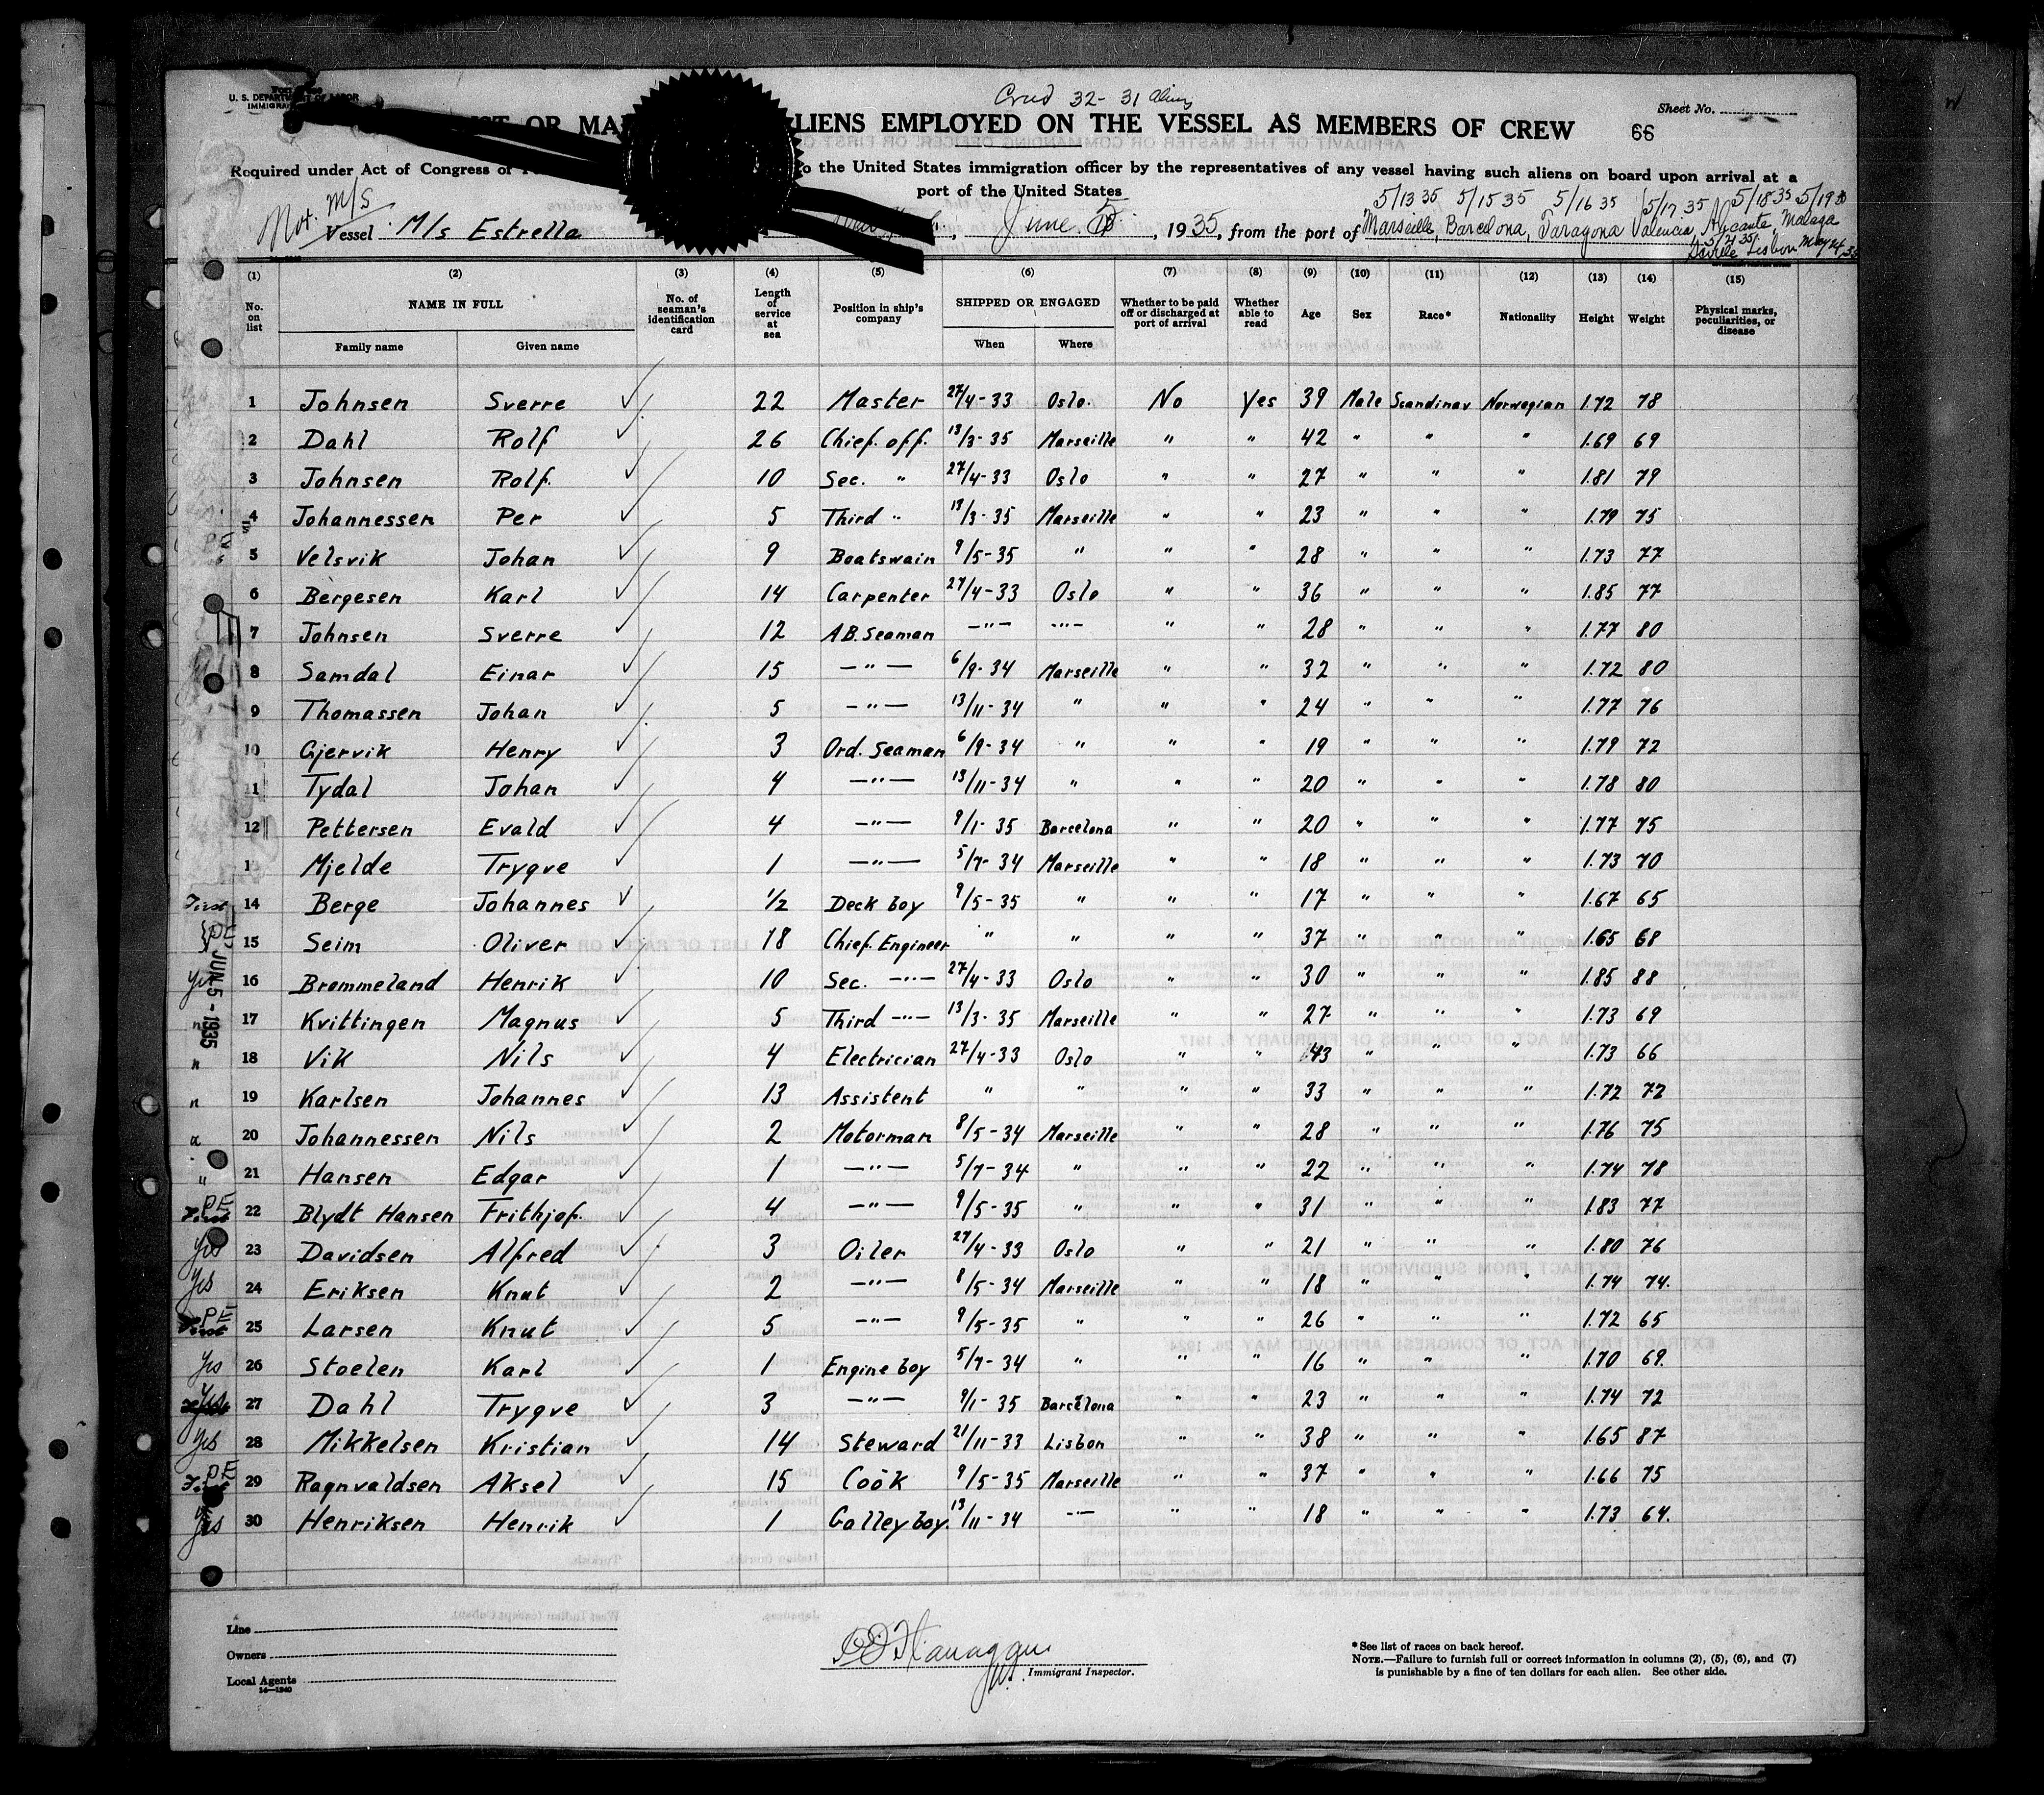 U. S. DEPARTMENT OF LABOR
Crew 32 - 31 aliens
Sheet No.
LIST OR MA LIENS EMPLOYED ON THE VESSEL AS MEMBERS OF CREW 66
Required under Act of Congress of to the United States immigration officer by the representatives of any vessel having such aliens on board upon arrival at a
port of the United States
5/13 35 5/15 35 5/16 35 5/17 35 5/18 35 5/19 35
Mot. M/S
Vessel M/s Estrella June 5, 1935, from the port of Marseille, Barcelona, Taragona Valencia, Alycante, Malaga
Seville 5/21 35 Lisbon May 24/35
(1) (2) (3) (4) (5) (6) (7) (8) (9) (10) (11) (12) (13) (14) (15)
No. on list NAME IN FULL No. of seaman's identification card Length of service at sea Position in ship's company SHIPPED OR ENGAGED Whether to be paid off or discharged at port of arrival Whether able to read Age Sex Race* Nationality Height Weight Physical marks, peculiarities, or disease
Family name Given name When Where
1 Johnsen Sverre ✓ 22 Master 27/4-33 Oslo. No Yes 39 Male Scandinav Norwegian 1.72 78
2 Dahl Rolf ✓ 26 Chief. off. 13/3-35 Marseille " " 42 " " " 1.69 69
3 Johnsen Rolf. ✓ 10 Sec. " 27/4-33 Oslo " " 27 " " " 1.81 79
4 Johannessen Per ✓ 5 Third " 13/3-35 Marseille " " 23 " " " 1.79 75
5 Velsvik Johan ✓ 9 Boatswain 9/5-35 " " " 28 " " " 1.73 77
6 Bergesen Karl ✓ 14 Carpenter 27/4-33 Oslo " " 36 " " " 1.85 77
7 Johnsen Sverre ✓ 12 AB. Seaman —"— —"— " " 28 " " " 1.77 80
8 Samdal Einar ✓ 15 —"— 6/9-34 Marseille " " 32 " " " 1.72 80
9 Thomassen Johan ✓ 5 —"— 13/11-34 " " " 24 " " " 1.77 76
10 Gjervik Henry ✓ 3 Ord. Seaman 6/9-34 " " " 19 " " " 1.79 72
11 Tydal Johan ✓ 4 —"— 13/11-34 " " " 20 " " " 1.78 80
12 Pettersen Evald ✓ 4 —"— 9/1-35 Barcelona " " 20 " " " 1.77 75
1 Mjelde Trygve ✓ 1 —"— 5/7-34 Marseille " " 18 " " " 1.73 70
First 14 Berge Johannes ✓ 1/2 Deck boy 9/5-35 " " " 17 " " " 1.67 65
PE 15 Seim Oliver ✓ 18 Chief. Engineer " " " " 37 " " " 1.65 68
Yes 16 Brommeland Henrik ✓ 10 Sec. —"— 27/4-33 Oslo " " 30 " " " 1.85 88
" 17 Kvittingen Magnus ✓ 5 Third —"— 13/3-35 Marseille " " 27 " " " 1.73 69
" 18 Vik Nils ✓ 4 Electrician 27/4-33 Oslo " " 43 " " " 1.73 66
" 19 Karlsen Johannes ✓ 13 Assistent " " " " 33 " " " 1.72 72
" 20 Johannessen Nils ✓ 2 Motorman 8/5-34 Marseille " " 28 " " " 1.76 75
" 21 Hansen Edgar ✓ 1 —"— 5/7-34 " " " 22 " " " 1.74 78
PE 22 Blydt Hansen Frithjof. ✓ 4 —"— 9/5-35 " " " 31 " " " 1.83 77
Yes 23 Davidsen Alfred ✓ 3 Oiler 27/4-33 Oslo " " 21 " " " 1.80 76
Yes 24 Eriksen Knut ✓ 2 —"— 8/5-34 Marseille " " 18 " " " 1.74 74.
PE 25 Larsen Knut ✓ 5 —"— 9/5-35 " " " 26 " " " 1.72 65
Yes 26 Stoelen Karl ✓ 1 Engine boy 5/7-34 " " " 16 " " " 1.70 69.
Yes 27 Dahl Trygve ✓ 3 —"— 9/1-35 Barcelona " " 23 " " " 1.74 72
Yes 28 Mikkelsen Kristian ✓ 14 Steward 21/11-33 Lisbon " " 38 " " " 1.65 87
PE 29 Ragnvaldsen Aksel ✓ 15 Cook 9/5-35 Marseille " " 37 " " " 1.66 75
Yes 30 Henriksen Henrik ✓ 1 Galley boy. 13/11-34 —"— " " 18 " " " 1.73 64.
JUN 5 - 1935
Line
Owners
Local Agents
14—1240
Flanaggan
Immigrant Inspector.
*See list of races on back hereof.
NOTE.—Failure to furnish full or correct information in columns (2), (5), (6), and (7)
is punishable by a fine of ten dollars for each alien. See other side.